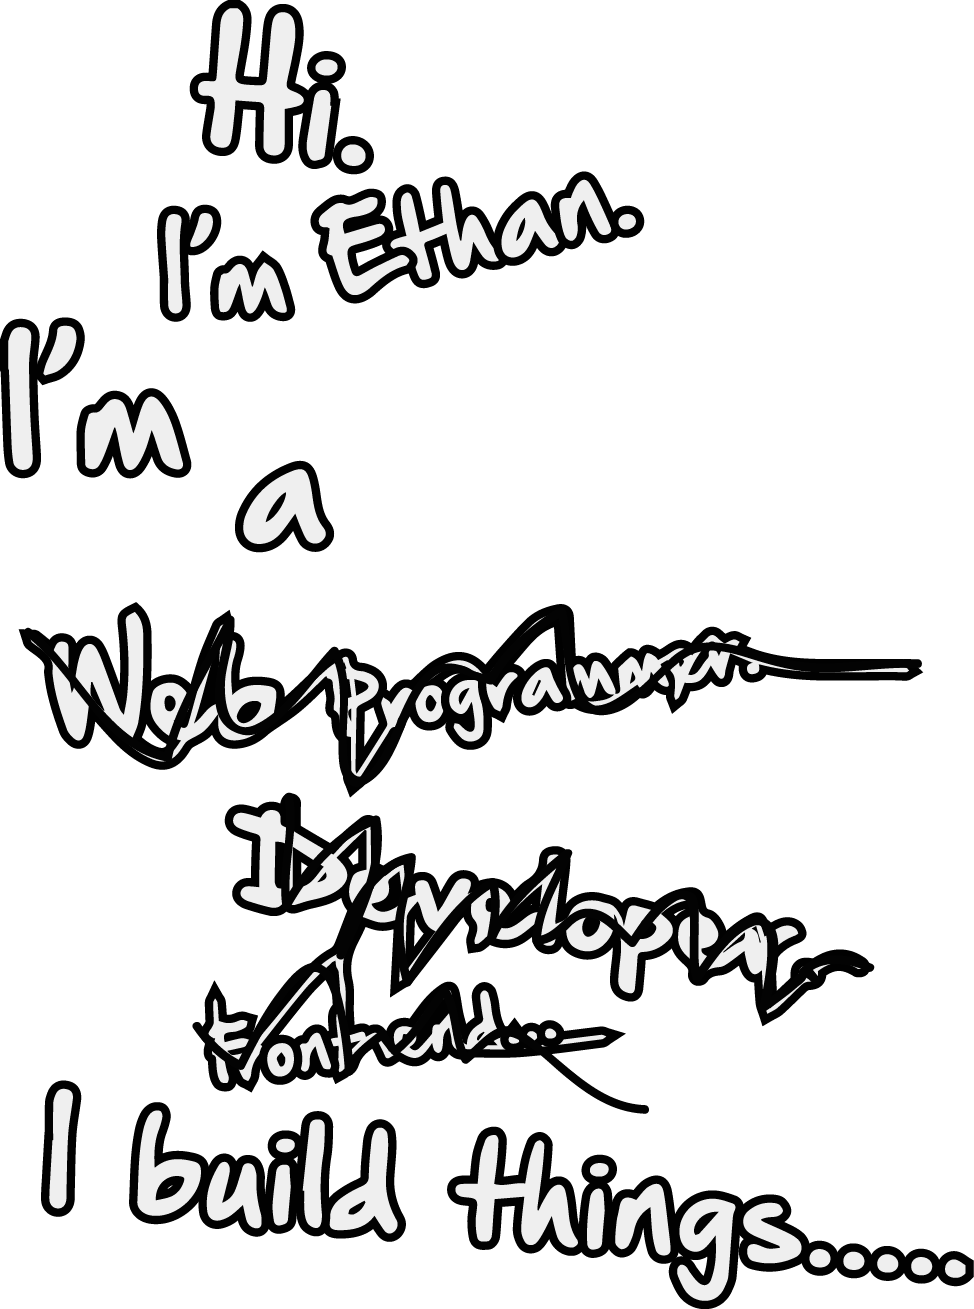 Hi.
I'm Ethan.
I'm
a
Web Programmer.
Developer
Frontend...
I build things.....